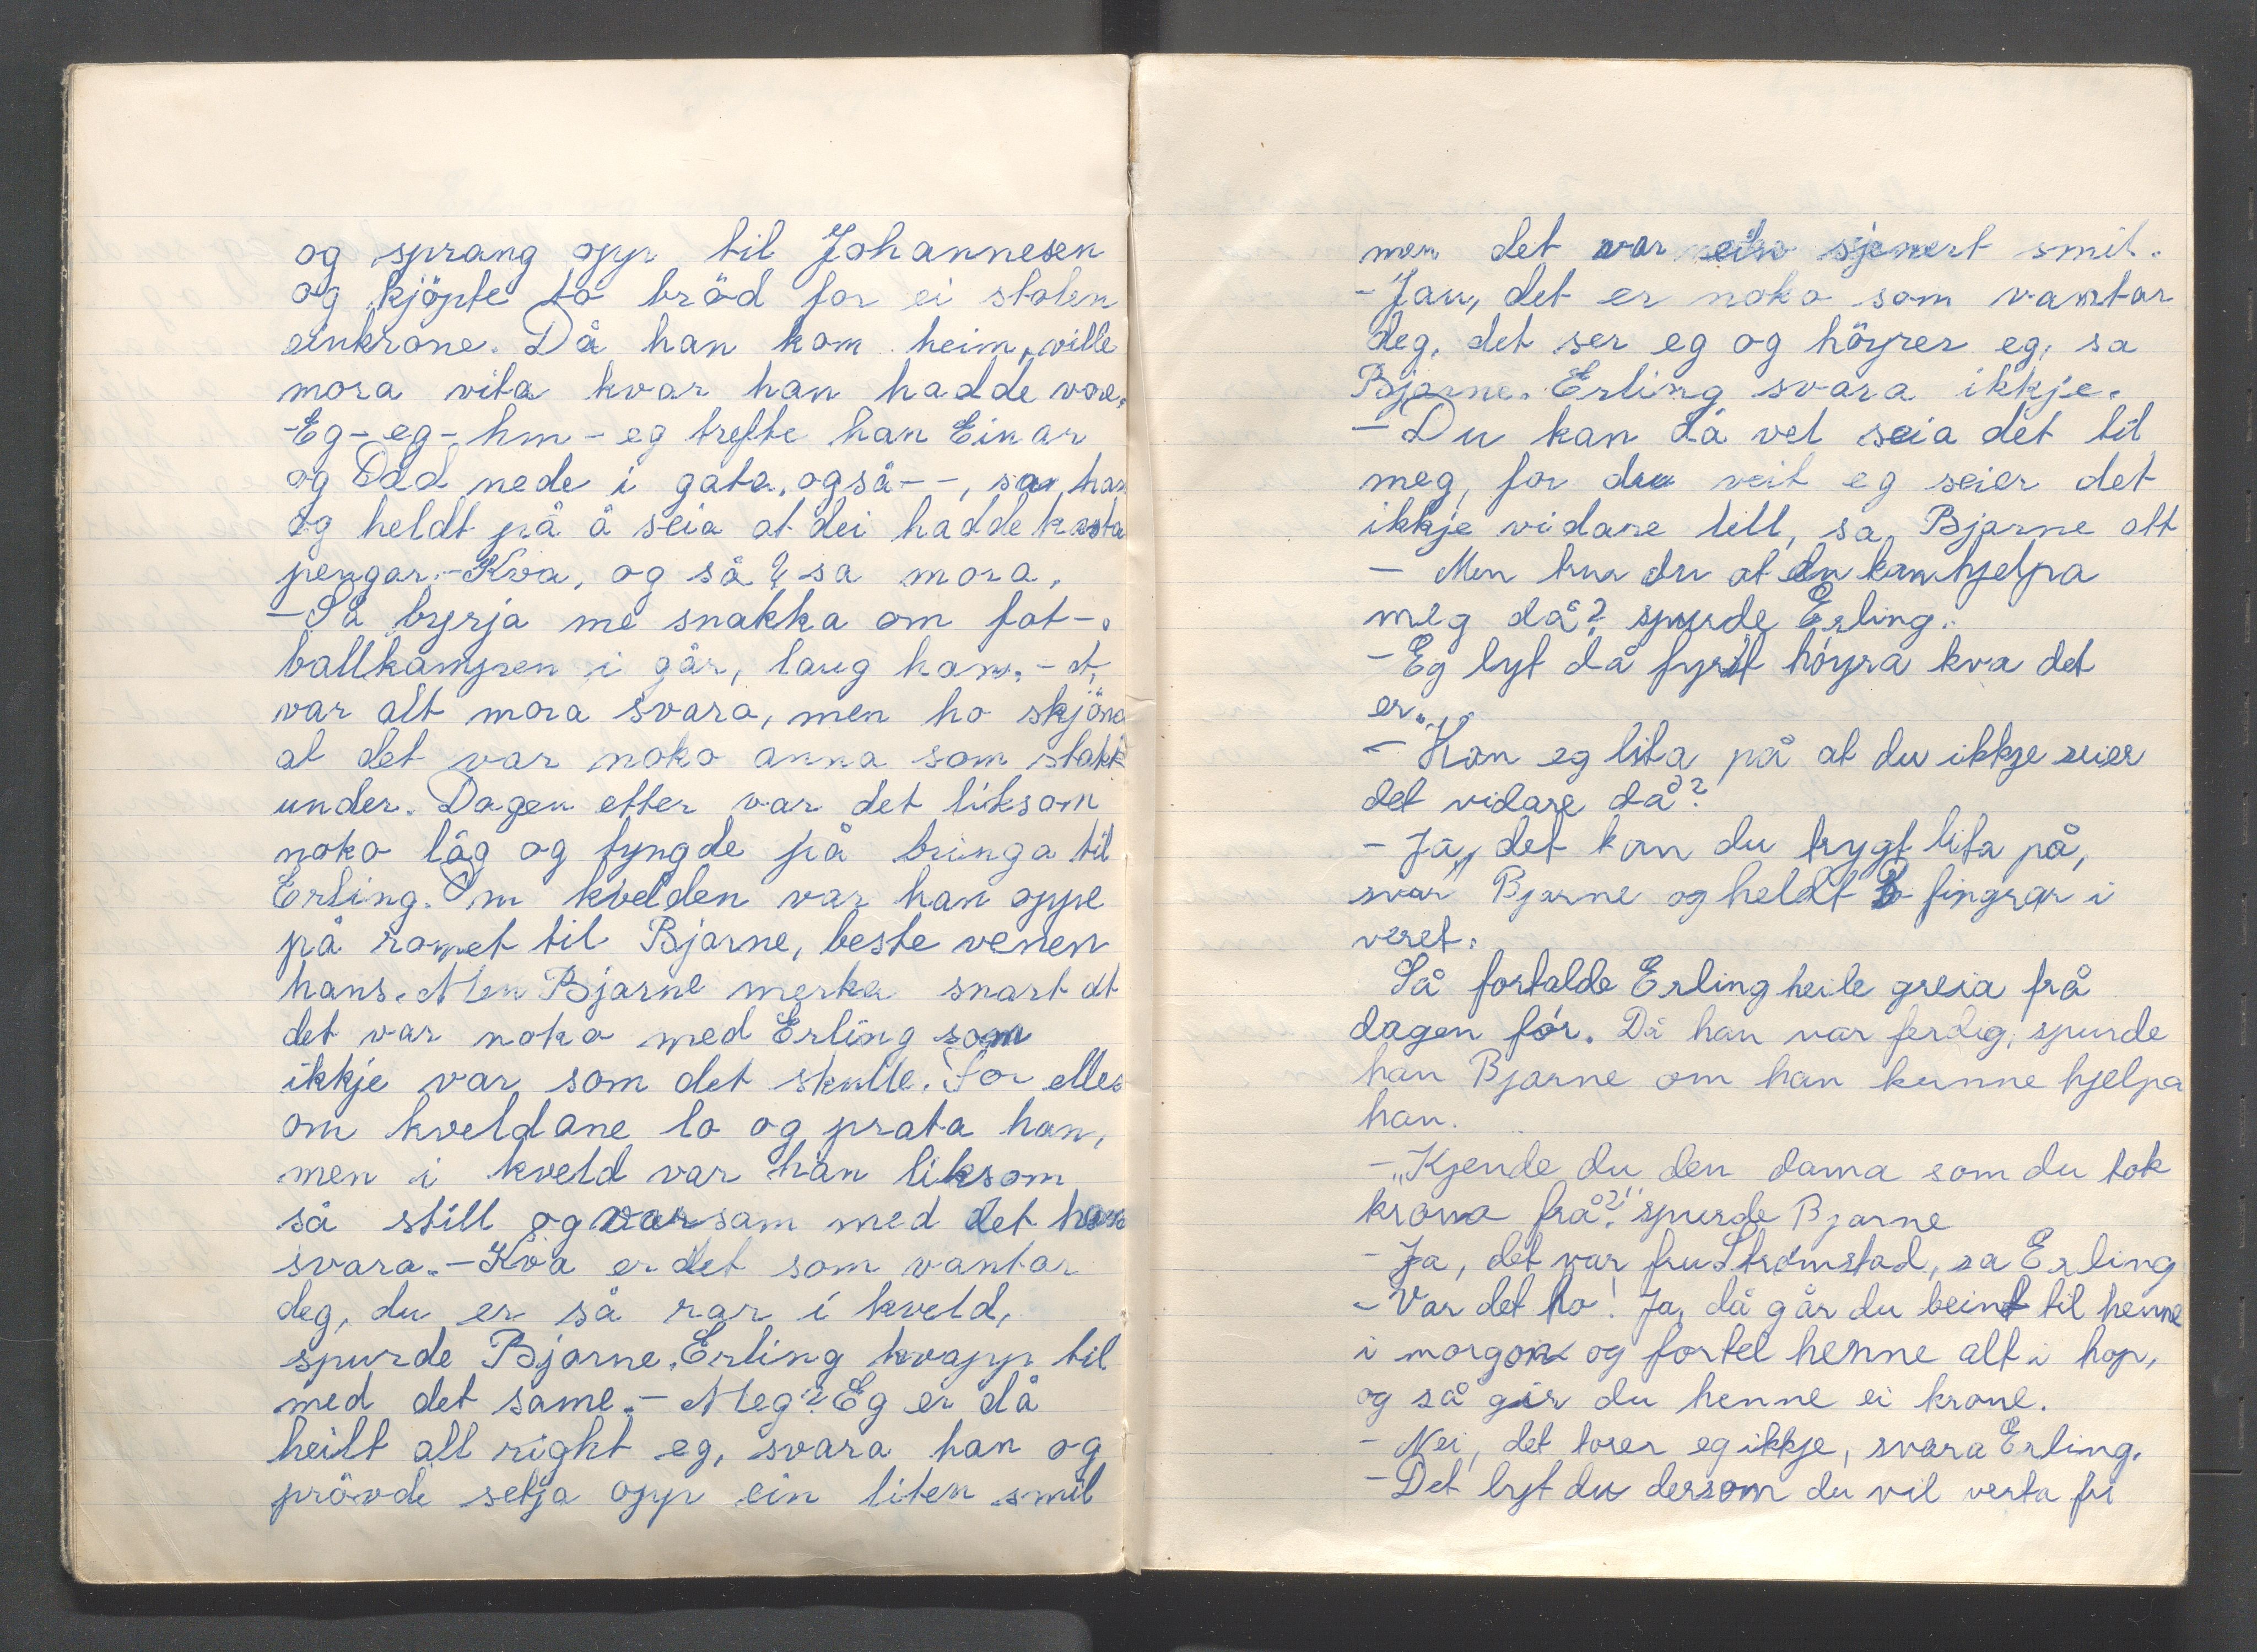 og sprang opp til Johannesen
og kjöpte to bröd for ei stolen
einkrone. Då han kom heim, ville
mora vita kvar han hadde vore.
- Eg - eg - hm - eg trefte han Einar
og Odd nede i gata, også - -, sa han
og heldt på å seia at dei hadde kasta
pengar. - Kva, og så? sa mora.
- Så byrja me snakka om fot-
ballkampen i går, laug han. -
var alt mora svara, men ho skjöna
at det var noko anna som stakk
under. Dagen etter var det liksom
noko låg og tyngde på bringa til
Erling. Om kvelden var han oppe
på romet til Bjarne, beste venen
hans. Men Bjarne merka snart at
det var noko med Erling som
ikkje var som det skulle. For elles
om kveldane lo og prata han,
men i kveld var han liksom
så still og varsam med det han
svara. - Kva er det som vantar
deg, du er så rar i kveld,
spurde Bjarne. Erling kvapp til
med det same. - Meg? Eg er då
heilt all right eg, svara han og
prövde setja opp ein liten smil
men det var ein sjenert smil.
- Jau, det er noko som vantar
deg, det ser eg og höyrer eg, sa
Bjarne. Erling svara ikkje.
- Du kan då vel seia det til
meg, for du veit eg seier det
ikkje vidare lell, sa Bjarne att
- Men trur du at du kan hjelpa
meg då? spurde Erling.
- Eg lyt då fyrst höyra kva det
er.
- Kan eg lita på at du ikkje seier
det vidare då?
- Ja, det kan du trygt lita på,
svar Bjarne og heldt fingrar i
veret.
Så fortalde Erling heile greia frå
dagen för. Då han var ferdig, spurde
han Bjarne om han kunne hjelpa
han.
- „Kjende du den dama som du tok
krona frå?" spurde Bjarne
- Ja, det var fru Strömstad, sa Erling
- Var det ho! Ja, då går du beint til henne
i morgon og fortel henne alt i hop,
og så gir du henne ei krone.
- Nei, det torer eg ikkje, svara Erling.
- Det lyt du dersom du vil verta fri